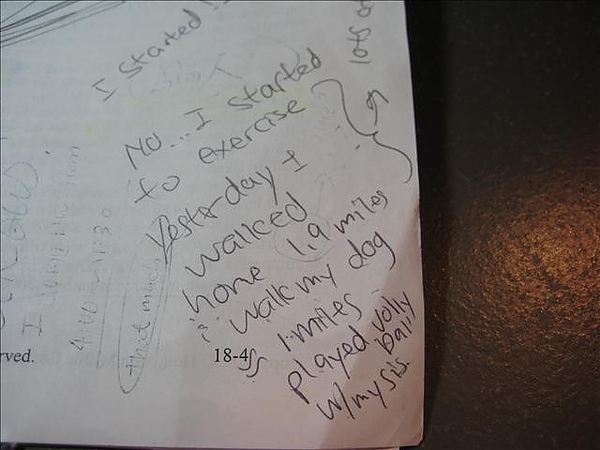 I started
No... I started
to exercise
Yesterday I
walked
home 1.9 miles
walk my dog
1 miles
played volly
ball
w/ my sis.
lots of
that much
I
rved.
18-4